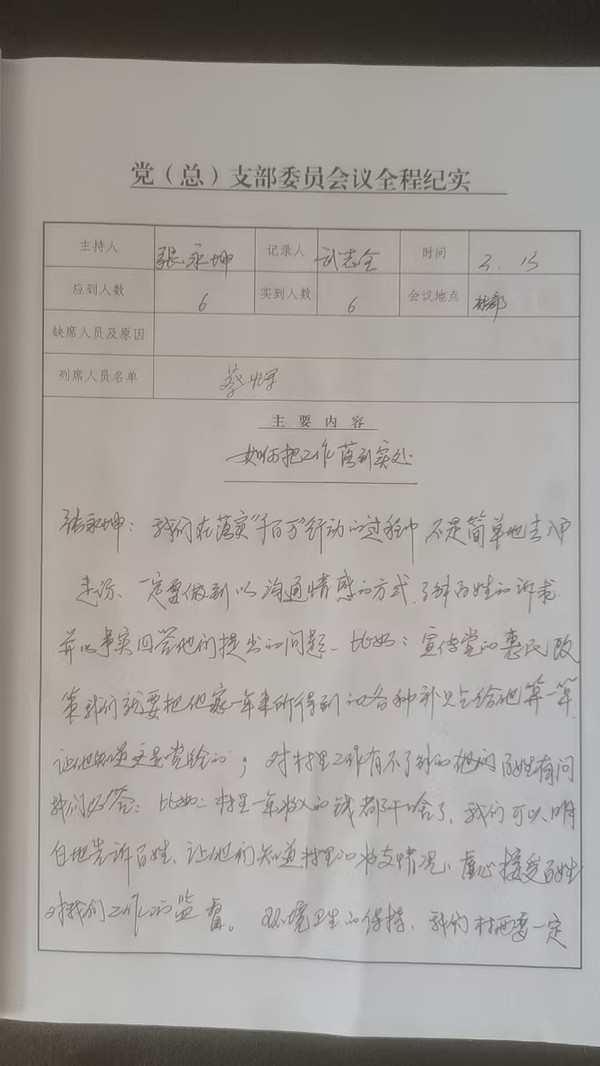 党（总）支部委员会议全程纪实
主持人 张永坤 记录人 武志全 时间 3.15
应到人数 6 实到人数 6 会议地点 村部
缺席人员及原因
列席人员名单 蔡辉
主要内容
如何把工作落到实处
张永坤：我们在落实“千百万”行动的过程中，不是简单地去入户
走访、一定要做到以沟通情感的方式，了解百姓的诉求
并以事实回答他们提出的问题。比如：宣传党的惠民政
策我们就要把他家一年来所得到的各种补贴给他算一算，
让他知道这是党给的；对村里工作有不了解的地方百姓有问
我们必答：比如：村里一年收入的钱都干啥了，我们可以明
白地告诉百姓、让他们知道村里的收支情况、虚心接受百姓
对我们工作的监督。环境卫生的保持、我们村两委一定